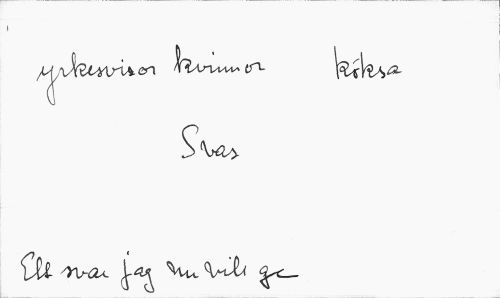 yrkesvisor kvinnor köksa
Svar
Ett svar jag nu vill ge